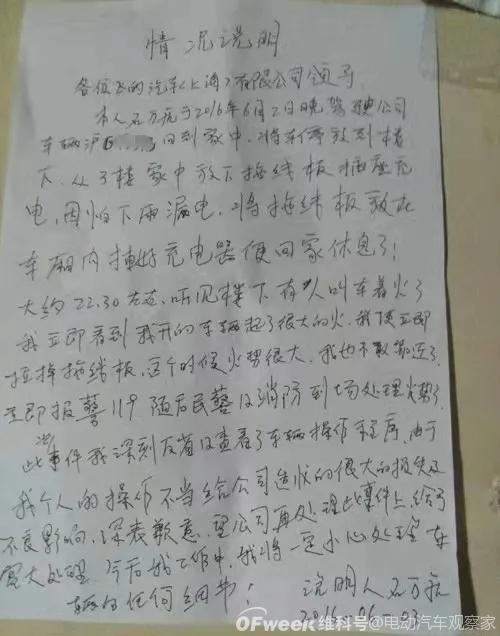 情况说明
各位飞的汽车(上海)有限公司领导
本人石万兵于2016年6月2日晚驾驶公司
车辆沪G 回到家中,将车停放到楼
下,从3楼家中放下拖线板插座充
电,因怕下雨漏电,将拖线板放在
车厢内插好充电器便回家休息了!
大约22.30左右,听见楼下有人叫车着火了
我立即看到我开的车辆起了很大的火,我便立即
拉掉拖线板,这个时候火势很大,我也不敢靠近了,
立即报警119随后民警及消防到场处理火势了.
此事件我深刻反省及查看了车辆操作程序,由于
我个人的操作不当给公司造成的很大的损失及
不良影响,深表歉意,望公司再处理此事件上,给予
宽大处理,今后我工作中,我将一定小心处理车
辆的任何细节!
说明人石万兵
2016-06-03
OFweek 维科号@电动汽车观察家